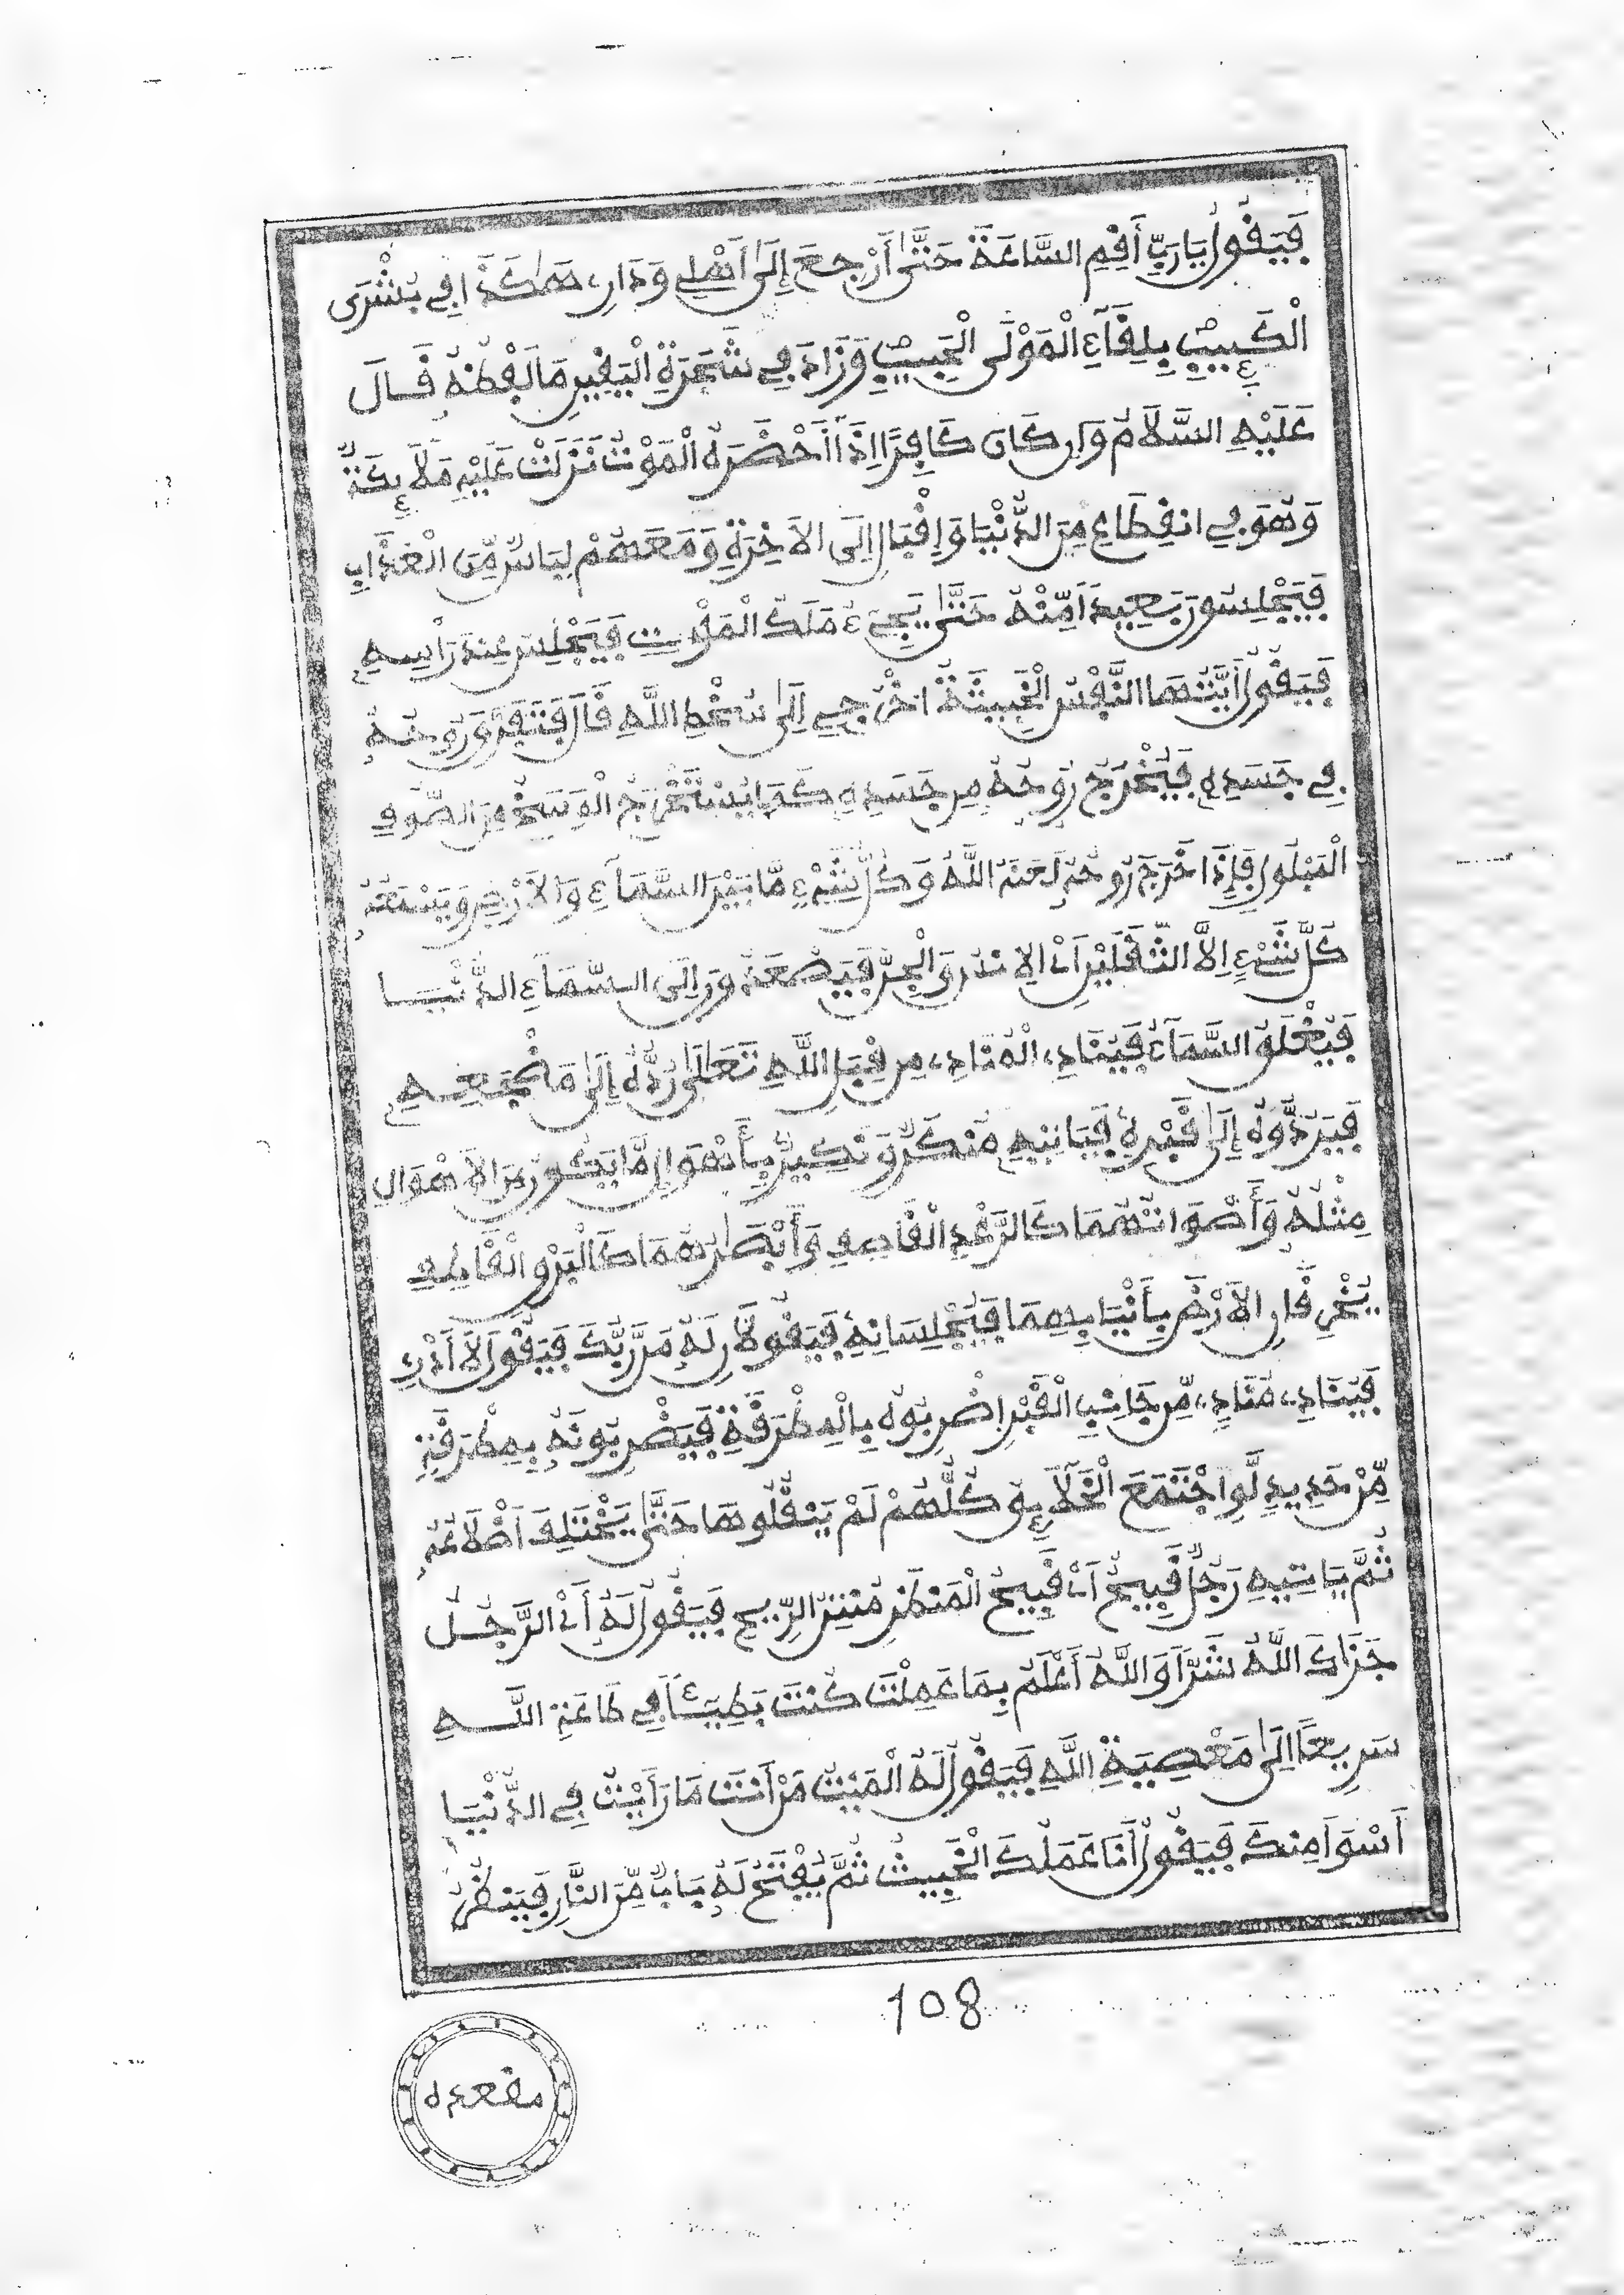 فَيَقُولُ يَارَبِّ أَقِمِ السَّاعَةَ حَتَّىٰ أَرْجِعَ إِلَىٰ أَهْلِي وَدَارِي هَٰكَذَا فِي بُشْرَى
الْكَئِيبِ بِلِقَآءِ الْمَوْلَى الْحَبِيبِ وَزَادَ فِي شَجَرَةِ الْيَقِينِ مَا لَفْظُهُ قَالَ
عَلَيْهِ السَّلَامُ وَإِن كَانَ كَافِرًا إِذَا أَحْضَرَهُ الْمَوْتُ نَزَلَتْ عَلَيْهِ مَلَآئِكَةٌ
وَهُوَ فِي انقِطَاعٍ مِنَ الدُّنْيَا وَإِقْبَالٍ إِلَى الآخِرَةِ وَمَعَهُمْ لِبَاسٌ مِّنَ الْعَذَابِ
فَيَجْلِسُونَ بَعِيدًا مِّنْهُ حَتَّىٰ يَجِيءَ مَلَكُ الْمَوْتِ فَيَجْلِسُ عِندَ رَأْسِهِ
فَيَقُولُ أَيَّتُهَا النَّفْسُ الْخَبِيثَةُ اخْرُجِي إِلَىٰ سُخْطِ اللَّهِ قَالَ فَتَفَرَّقُ رُوحُهُ
فِي جَسَدِهِ فَيُخْرَجُ رُوحُهُ مِن جَسَدِهِ كَمَا يُسْتَخْرَجُ الْوَسَخُ مِنَ الصُّوفِ
الْمَبْلُولِ فَإِذَا خَرَجَ رُوحُهُ لَعَنَهُ اللَّهُ وَكُلُّ شَيْءٍ مَّا بَيْنَ السَّمَآءِ وَالْأَرْضِ وَيَسْمَعُهُ
كُلُّ شَيْءٍ إِلَّا الثَّقَلَيْنِ أَيِ الْإِنسُ وَالْجِنُّ فَيَصْعَدُونَ إِلَى السَّمَآءِ الدُّنْيَا
فَيُغْلَقُ السَّمَآءُ فَيُنَادِي الْمُنَادِي مِن قِبَلِ اللَّهِ تَعَالَىٰ رُدُّهُ إِلَىٰ مَضْجَعِهِ
فَيَرُدُّوهُ إِلَىٰ قَبْرِهِ فَيَاتِيهِ مُنكَرٌ وَنَكِيرٌ بِأَهْوَالِ مَّا يَكُونُ مِنَ الْأَهْوَالِ
مِثْلُهُ وَأَصْوَاتُهُمَا كَالرَّعْدِ الْقَاصِفِ وَأَبْصَارُهُمَا كَالْبَرْقِ الْخَاطِفِ
يَخْرِقَانِ الْأَرْضَ بِأَنْيَابِهِمَا فَيُجْلِسَانِهِ فَيَقُولَانِ لَهُ مَن رَّبُّكَ فَيَقُولُ لَا أَدْرِي
فَيُنَادِي مُنَادٍ مِّن جَانِبِ الْقَبْرِ اضْرِبُوهُ بِالْمِطْرَقَةِ فَيَضْرِبُونَهُ بِمِطْرَقَةٍ
مِّنْ حَدِيدٍ لَّوِ اجْتَمَعَ الْخَلَآئِقُ كُلُّهُمْ لَمْ يَنْقُلُوهَا حَتَّىٰ يَخْتَلِفَ أَضْلَاعُهُ
ثُمَّ يَاتِيهِ رَجُلٌ قَبِيحٌ أَيْ قَبِيحُ الْمَنظَرِ مُنتِنُ الرِّيحِ فَيَقُولُ لَهُ أَيِ الرَّجُلُ
جَزَاكَ اللَّهُ شَرًّا وَاللَّهُ أَعْلَمُ بِمَا عَمِلْتَ كُنتَ بَطِيئًا فِي طَاعَةِ اللَّهِ
سَرِيعًا إِلَىٰ مَعْصِيَةِ اللَّهِ فَيَقُولُ لَهُ الْمَيِّتُ مَنْ أَنتَ مَا رَأَيْتُ فِي الدُّنْيَا
أَسْوَأَ مِنكَ فَيَقُولُ أَنَا عَمَلُكَ الْخَبِيثُ ثُمَّ يُفْتَحُ لَهُ بَابٌ مِّنَ النَّارِ فَيَنظُرُ
108